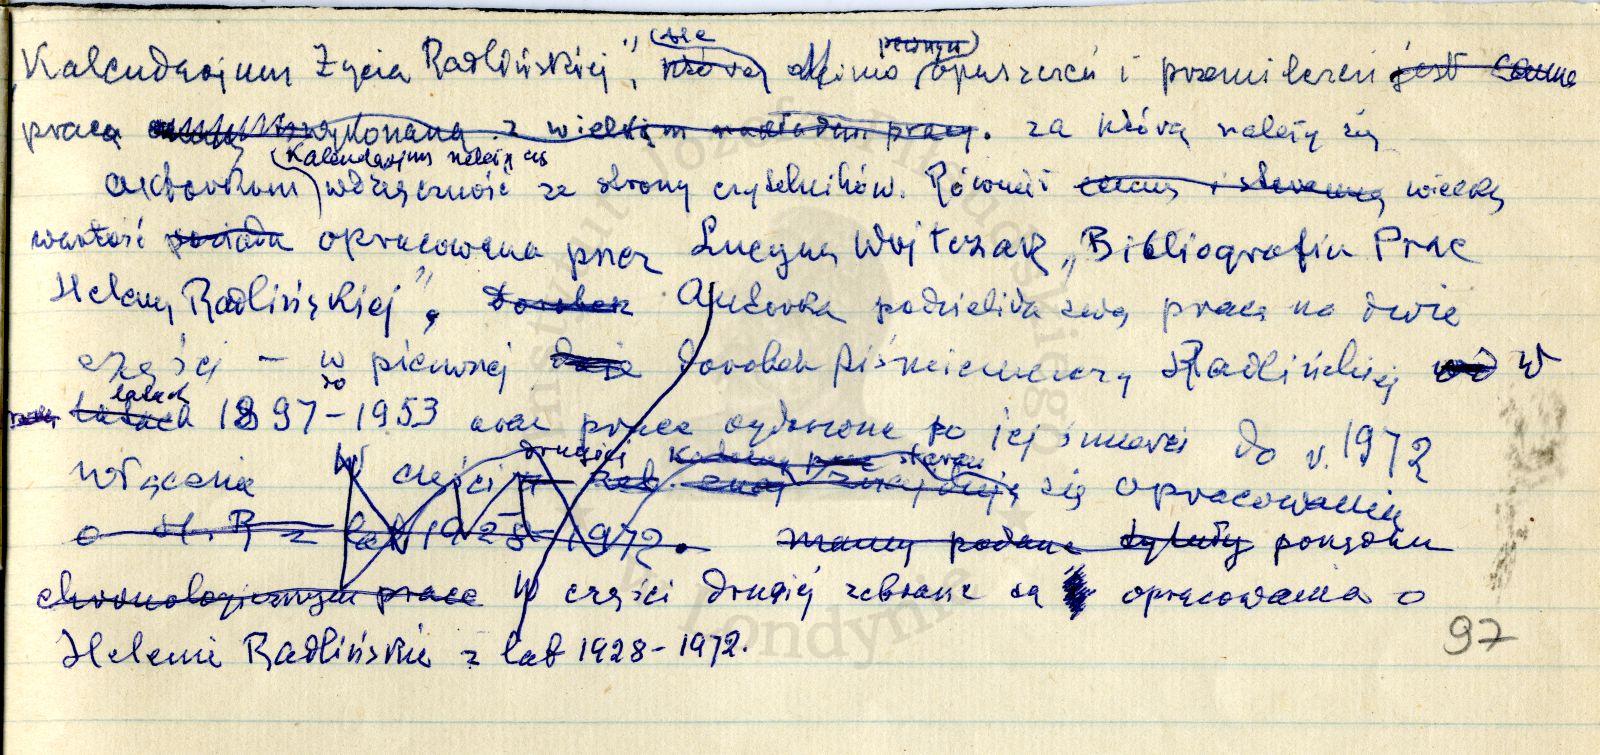 Kalendarjum Życia Radlińskiej", którą Mimo pewnych opuszczeń i przemilczeń jest cenne
pracą wykonaną z wielkim nakładem pracy. za którą należy się
Kalendarjum należy się
autorkom wdzięczność ze strony czytelników. Również cenną i staranną wielką
wartość posiada opracowana przez Lucynę Wojtczak „Bibliografia Prac
Heleny Radlińskiej", Dorobek Autorka podzieliła swą pracę na dwie
części - w pierwszej daje dorobek piśmienniczy Radlińskiej od w
latach
latach 1897-1953 oraz prace wydane po jej śmierci do r. 1972
drugiej
włącznie W części II zaś znaj znajdują się opracowania
o H. R z lat 1928-1972. mamy podane tytuły porządku
chronologicznym prace W części drugiej zebrane są opracowania o
Helenie Radlińskie z lat 1928-1972.
97
Instytut Józefa Piłsudskiego
w Londynie